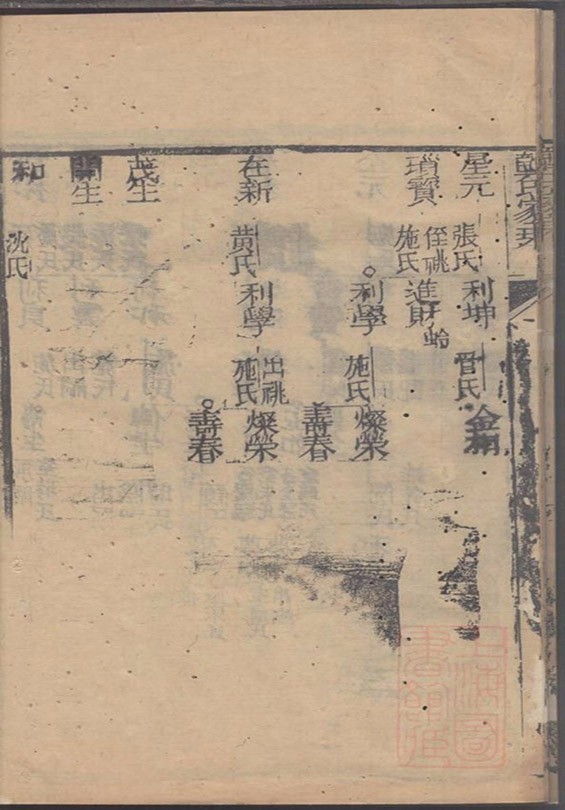 星元 張氏 利坤 管氏 金和
瑣寶 施氏 侄祧 進財 螟蛉
利學 施氏 燦榮
壽春
在新 黄氏 利學 施氏 出祧 燦榮
壽春
茂生
開生
和 沈氏